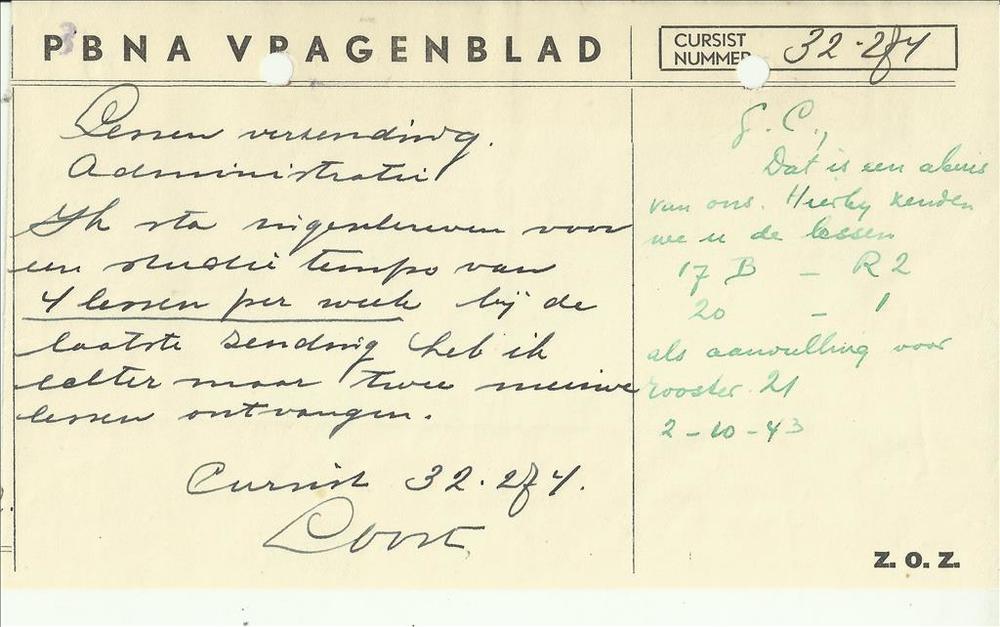 PBNA VRAGENBLAD
CURSIST
NUMMER 32.284
Lessen verzending.
Administratie
Ik sta ingeschreven voor
een studie tempo van
4 lessen per week bij de
laatste zending heb ik
echter maar twee nieuwe
lessen ontvangen.
Cursist 32.284.
G.C.,
Dat is een abuis
van ons. Hierby zenden
we u de lessen
17 B - R2
20 - 1
als aanvulling voor
rooster 21
2-10-43
Z.O.Z.